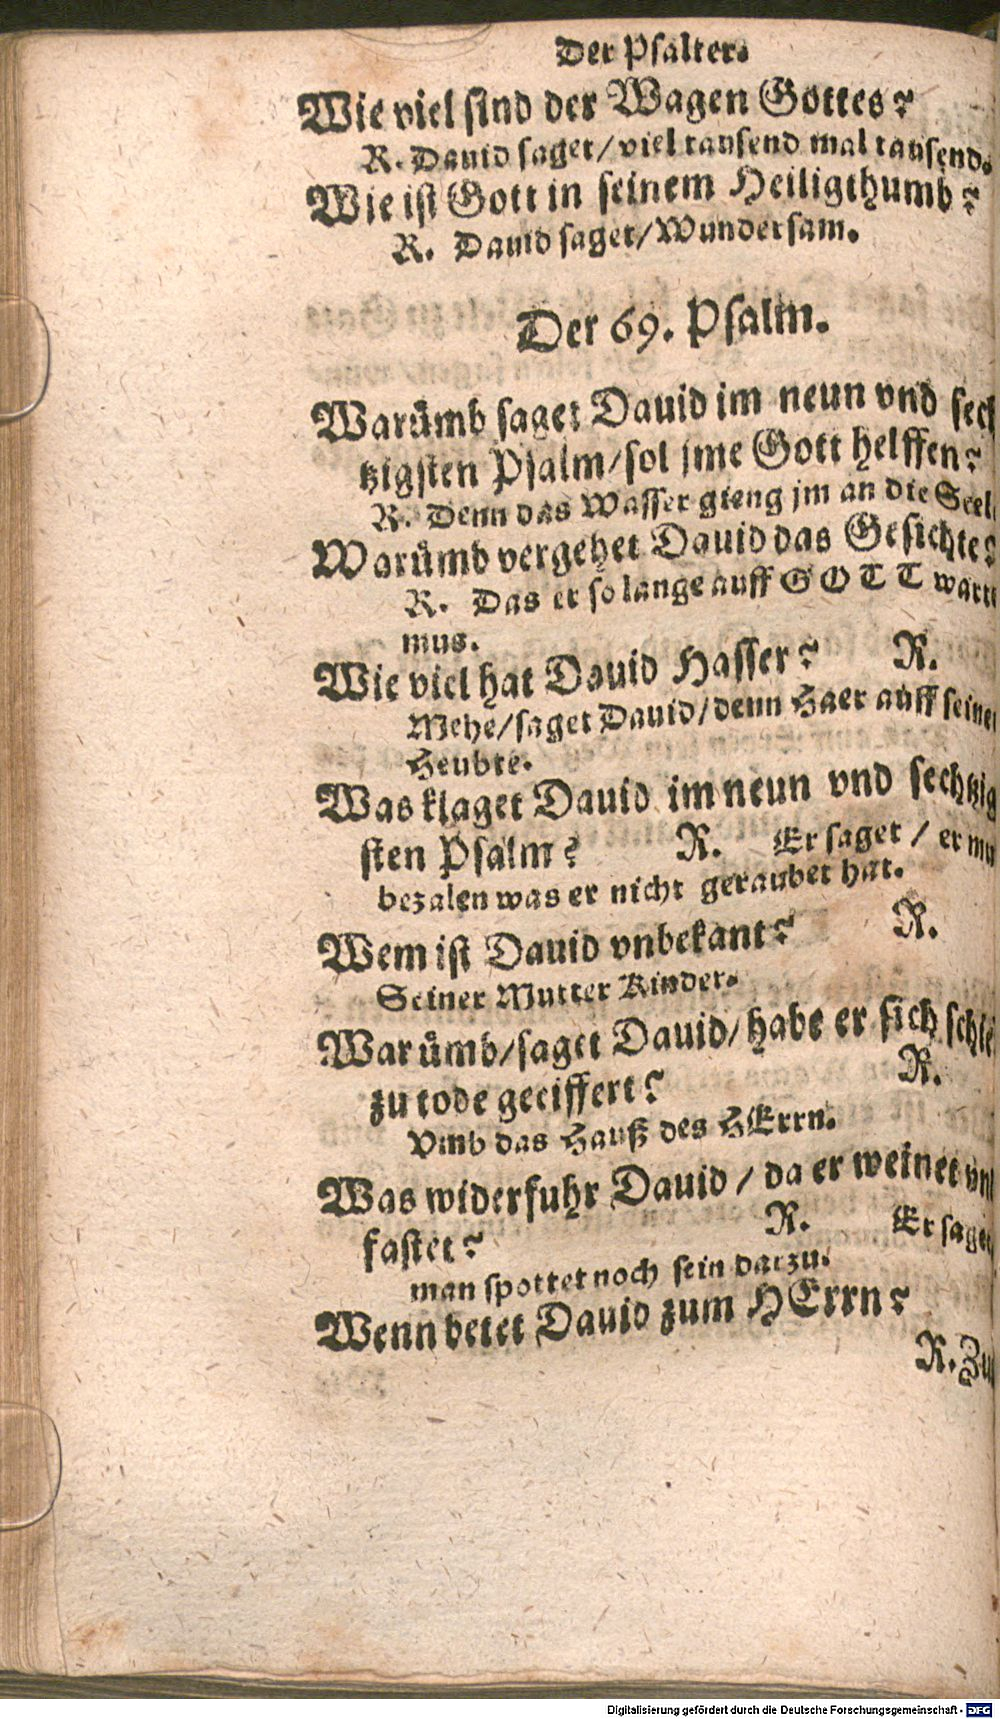 Der Psalter.
Wie viel sind der Wagen Gottes?
R. Dauid saget/ viel tausend mal tausend.
Wie ist Gott in seinem Heiligthumb?
R. Dauid saget/ Wundersam.
Der 69. Psalm.
Warümb saget Dauid im neun vnd sech
tzigsten Psalm/ sol jme Gott helffen?
R. Denn das Wasser gieng jm an die Seele
Warümb vergehet Dauid das Gesichte?
R. Das er so lange auff GOTT warten
mus.
Wie viel hat Dauid Hasser? R.
Mehe/ saget Dauid/ denn Haer auff seinem
Heubte.
Was klaget Dauid im neun vnd sechtzig
sten Psalm? R. Er saget/ er mu
bezalen was er nicht geraubet hat.
Wem ist Dauid vnbekant? R.
Seiner Mutter Kinder.
Warümb/ saget Dauid/ habe er sich schie
zu tode geeiffert? R.
Vmb das Hauß des HErrn.
Was widerfuhr Dauid/ da er weinet vnd
fastet? R. Er saget
man spottet noch sein darzu.
Wenn betet Dauid zum HErrn?
R. Zu
Digitalisierung gefördert durch die Deutsche Forschungsgemeinschaft - DFG